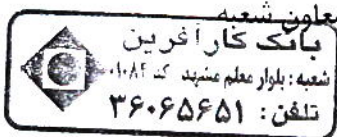 معاون شعبه
بانک کارآفرین
شعبه : بلوار معلم مشهد کد ۰۱۰۸۴
تلفن : ۳۶۰۶۵۶۵۱